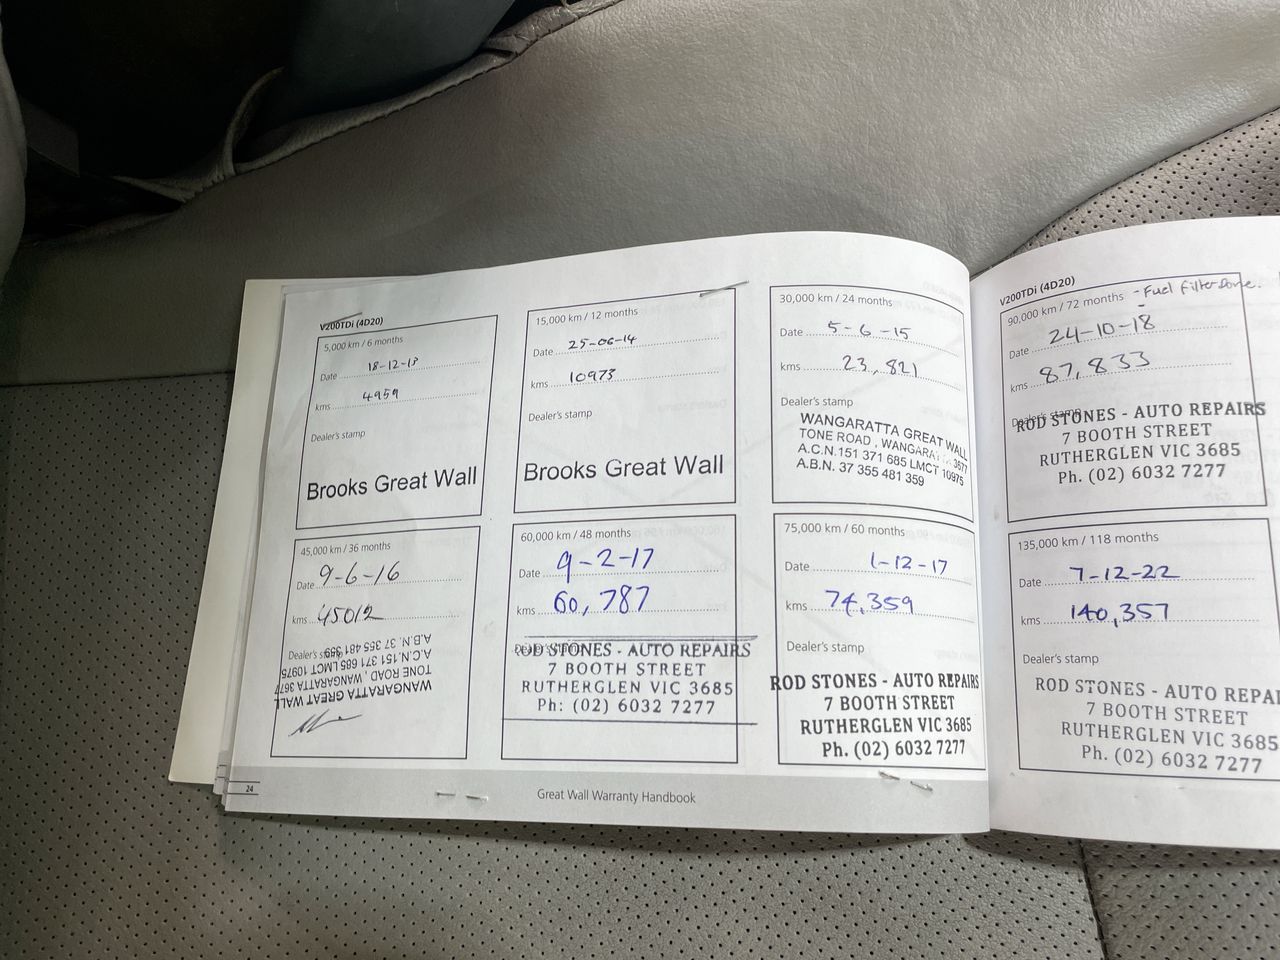 V200TDi (4D20)
5,000 km / 6 months
Date 18-12-13
kms 4959
Dealer's stamp
Brooks Great Wall
15,000 km / 12 months
Date 25-06-14
kms 10973
Dealer's stamp
Brooks Great Wall
30,000 km / 24 months
Date 5-6-15
kms 23,821
Dealer's stamp
WANGARATTA GREAT WALL
TONE ROAD, WANGARA 3677
A.C.N.151 371 685 LMCT 10975
A.B.N. 37 355 481 359
45,000 km / 36 months
Date 9-6-16
kms 45012
Dealer's stamp
WANGARATTA GREAT WALL
TONE ROAD, WANGARATTA 3677
A.C.N.151 371 685 LMCT 10975
A.B.N. 37 355 481 359
60,000 km / 48 months
Date 9-2-17
kms 60,787
Dealer's stamp
ROD STONES - AUTO REPAIRS
7 BOOTH STREET
RUTHERGLEN VIC 3685
Ph: (02) 6032 7277
75,000 km / 60 months
Date 1-12-17
kms 74,359
Dealer's stamp
ROD STONES - AUTO REPAIRS
7 BOOTH STREET
RUTHERGLEN VIC 3685
Ph. (02) 6032 7277
24
Great Wall Warranty Handbook
V200TDi (4D20)
90,000 km / 72 months - Fuel filter Done.
Date 24-10-18
kms 87,833
Dealer's stamp
ROD STONES - AUTO REPAIRS
7 BOOTH STREET
RUTHERGLEN VIC 3685
Ph. (02) 6032 7277
135,000 km / 118 months
Date 7-12-22
kms 140,357
Dealer's stamp
ROD STONES - AUTO REPAI
7 BOOTH STREET
RUTHERGLEN VIC 3685
Ph. (02) 6032 7277